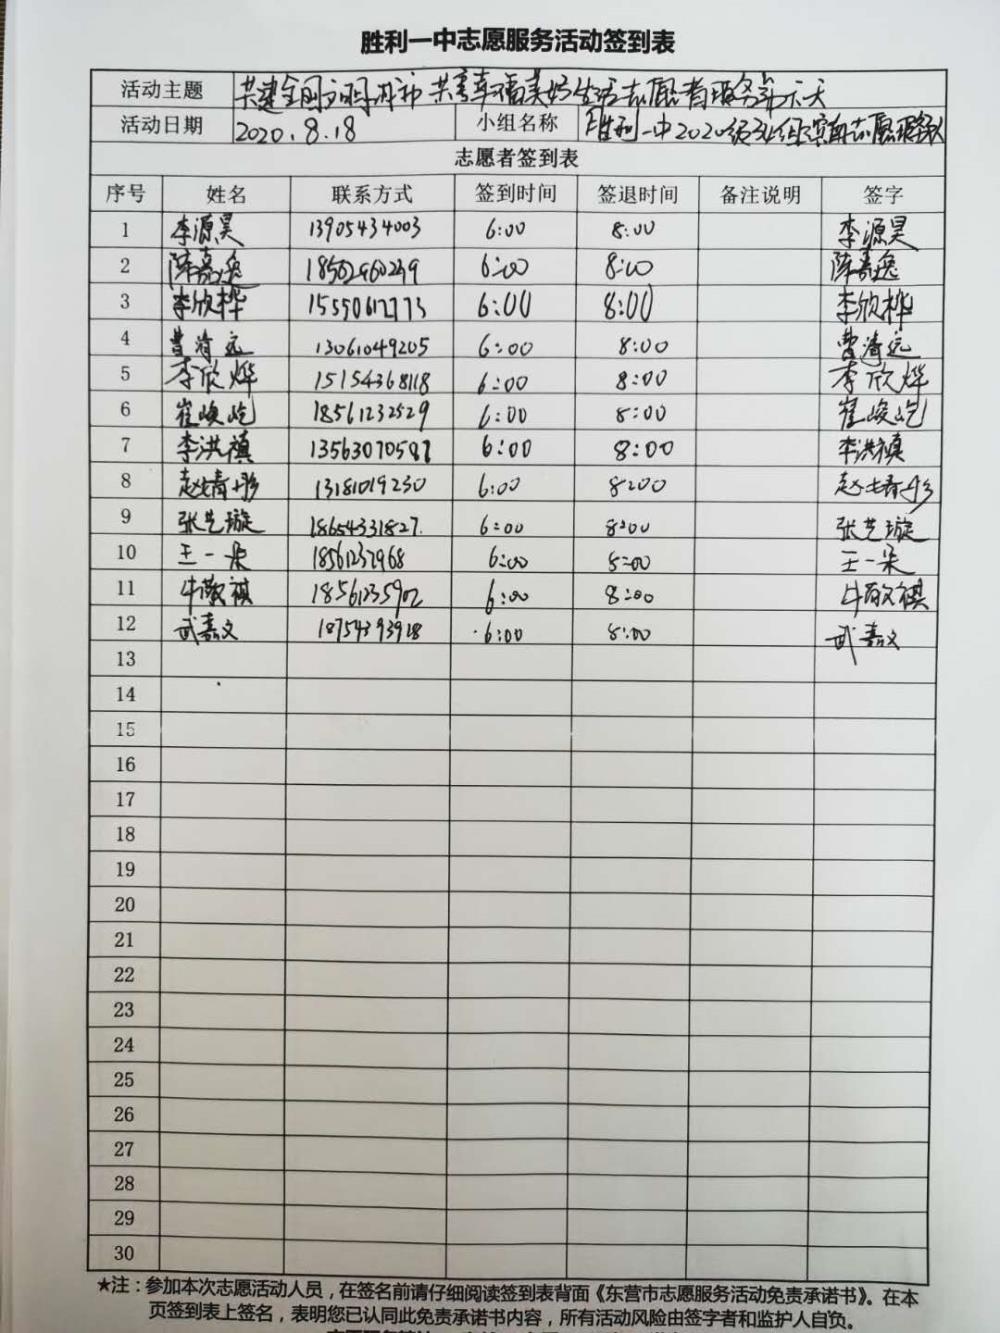 胜利一中志愿服务活动签到表
活动主题 共建全国文明城市 共享幸福美好生活志愿者服务第六天
活动日期 2020.8.18 小组名称 胜利一中2020级
志愿者签到表
序号 姓名 联系方式 签到时间 签退时间 备注说明 签字
1 李源昊 13905434003 6:00 8:00 李源昊
2 陈嘉逸 18562960249 6:00 8:00 陈嘉逸
3 李欣桦 15550612773 6:00 8:00 李欣桦
4 曹清远 13061049205 6:00 8:00 曹清远
5 李欣烨 15154368118 6:00 8:00 李欣烨
6 崔峻屹 18561232529 6:00 8:00 崔峻屹
7 李洪禛 13563070587 6:00 8:00 李洪禛
8 赵婧彤 13181019230 6:00 8:00 赵婧彤
9 张艺璇 18654331827 6:00 8:00 张艺璇
10 王一朵 18561232968 6:00 8:00 王一朵
11 牛敬祺 18561235902 6:00 8:00 牛敬祺
12 武嘉文 18754393928 6:00 8:00 武嘉文
13
14
15
16
17
18
19
20
21
22
23
24
25
26
27
28
29
30
★注：参加本次志愿活动人员，在签名前请仔细阅读签到表背面《东营市志愿服务活动免责承诺书》。在本
页签到表上签名，表明您已认同此免责承诺书内容，所有活动风险由签字者和监护人自负。